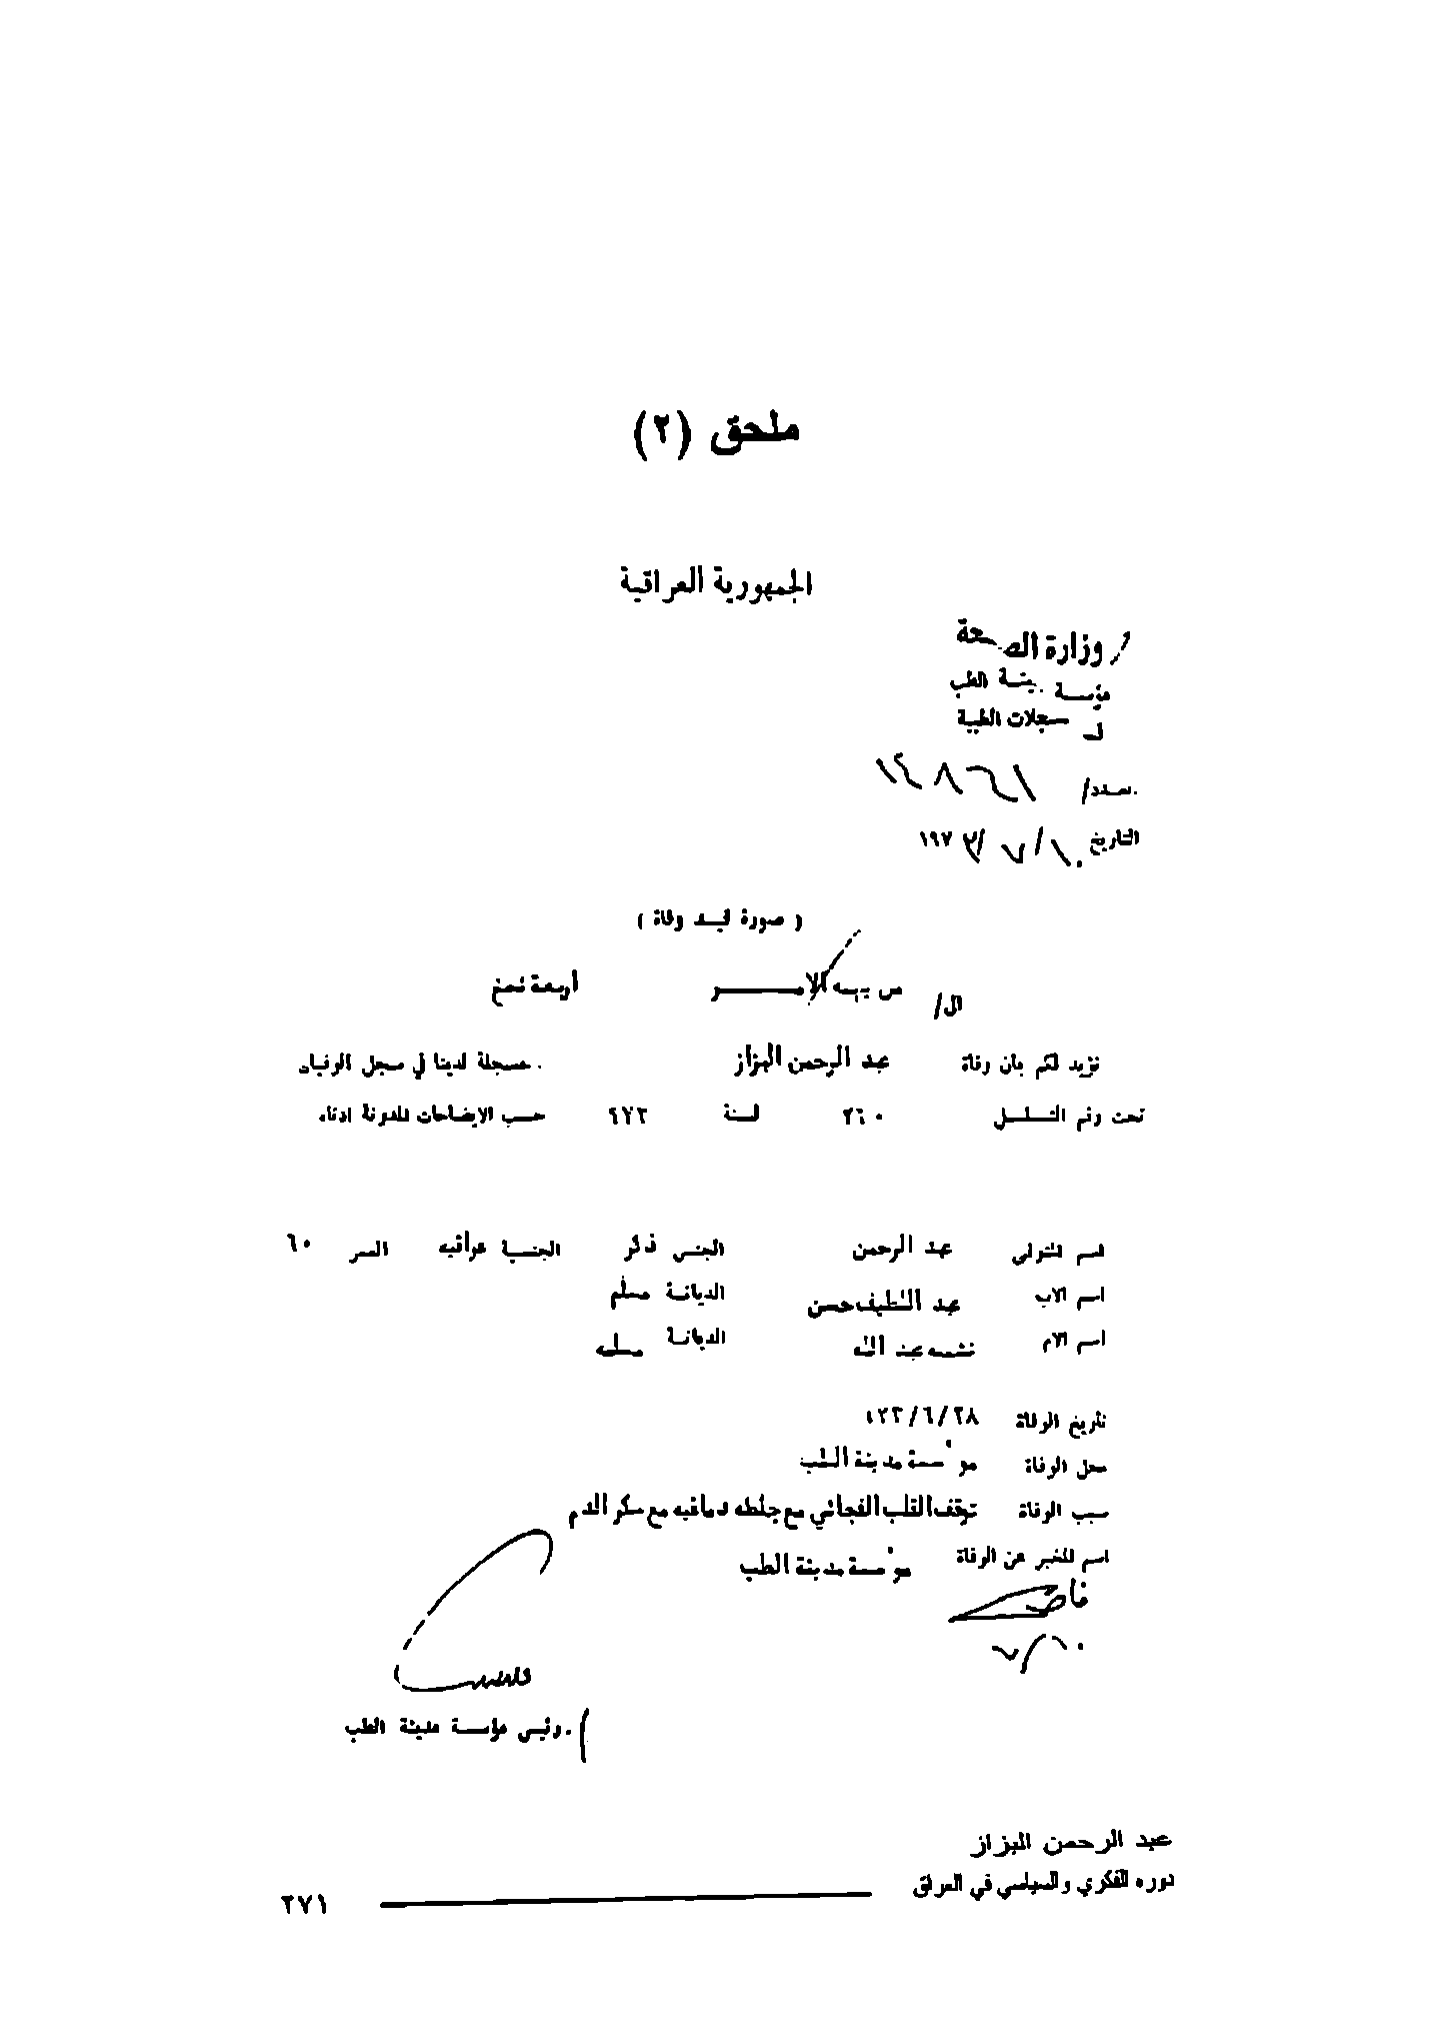 ملحق (٢)
الجمهورية العراقية
وزارة الصحة
مؤسسة مدينة الطب
السجلات الطبية
العدد/
التاريخ ١٠/ ٧ /١٩٧٣
( صورة قيد وفاة )
ال/ من يهمه الامـــر
نؤيد لكم بأن وفاة عبد الرحمن البزاز مسجلة لدينا في سجل الوفيات
تحت رقم التسلسل ٢٦٠ لسنة ٩٧٣ حسب الايضاحات المدونة ادناه
اسم المتوفي عبد الرحمن الجنس ذكر الجنسية عراقيه العمر ٦٠
اسم الاب عبد اللطيف حسن الديانة مسلم
اسم الام نشميه عبد الله الديانة مسلمه
تاريخ الوفاة ٢٨/٦/٩٧٣
محل الوفاة مؤسسة مدينة الطب
سبب الوفاة توقف القلب الفجائي مع جلطه دماغيه مع سكر الدم
اسم المخبر عن الوفاة مؤسسة مدينة الطب
٧/١٠
رئيس مؤسسة مدينة الطب
عبد الرحمن البزاز
دوره الفكري والسياسي في العراق
٢٧١